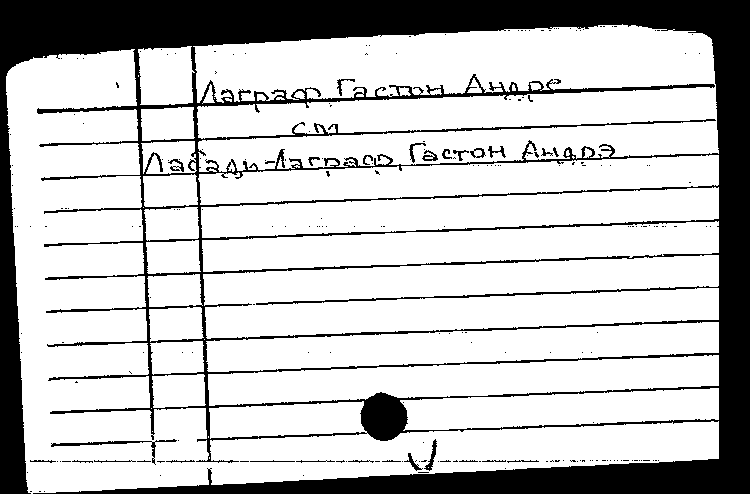 Лаграф, Гастон Андре
см
Лабади-Лаграф, Гастон Андрэ